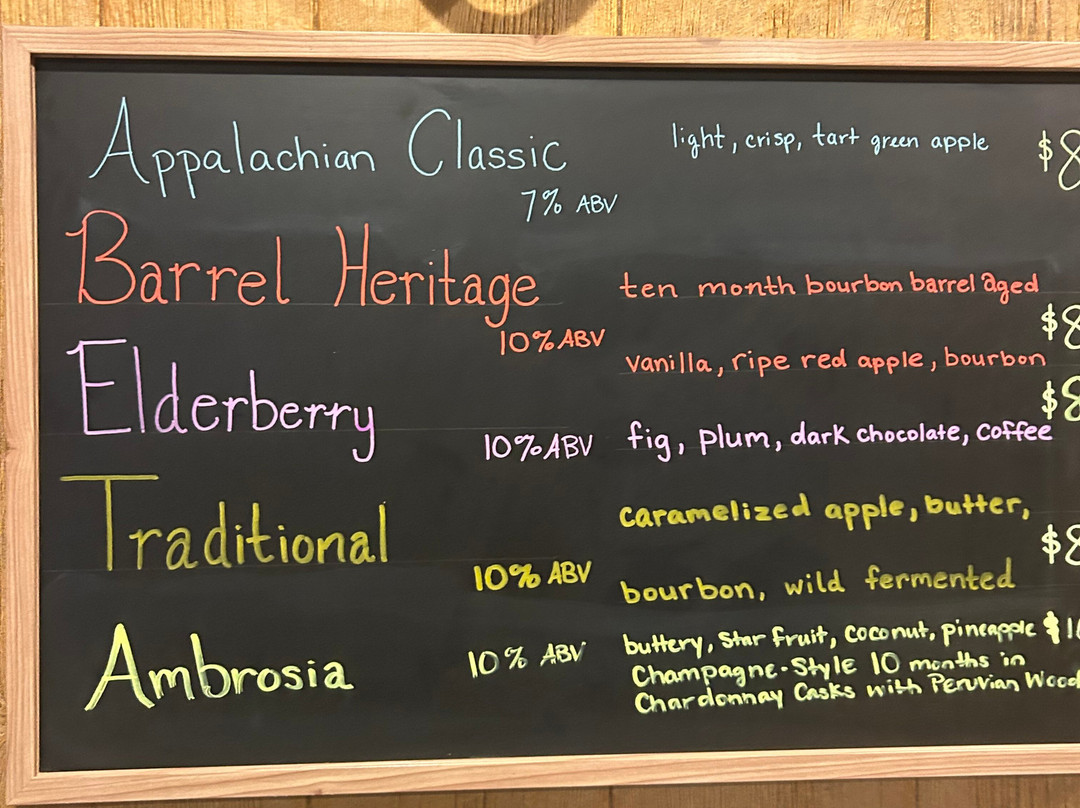 Appalachian Classic light, crisp, tart green apple $8
7% ABV
Barrel Heritage ten month bourbon barrel aged
10% ABV $8
vanilla, ripe red apple, bourbon
Elderberry $8
10% ABV fig, plum, dark chocolate, coffee
Traditional caramelized apple, butter,
$8
10% ABV bourbon, wild fermented
Ambrosia 10% ABV buttery, star fruit, coconut, pineapple
Champagne-Style 10 months in
Chardonnay Casks with Peruvian